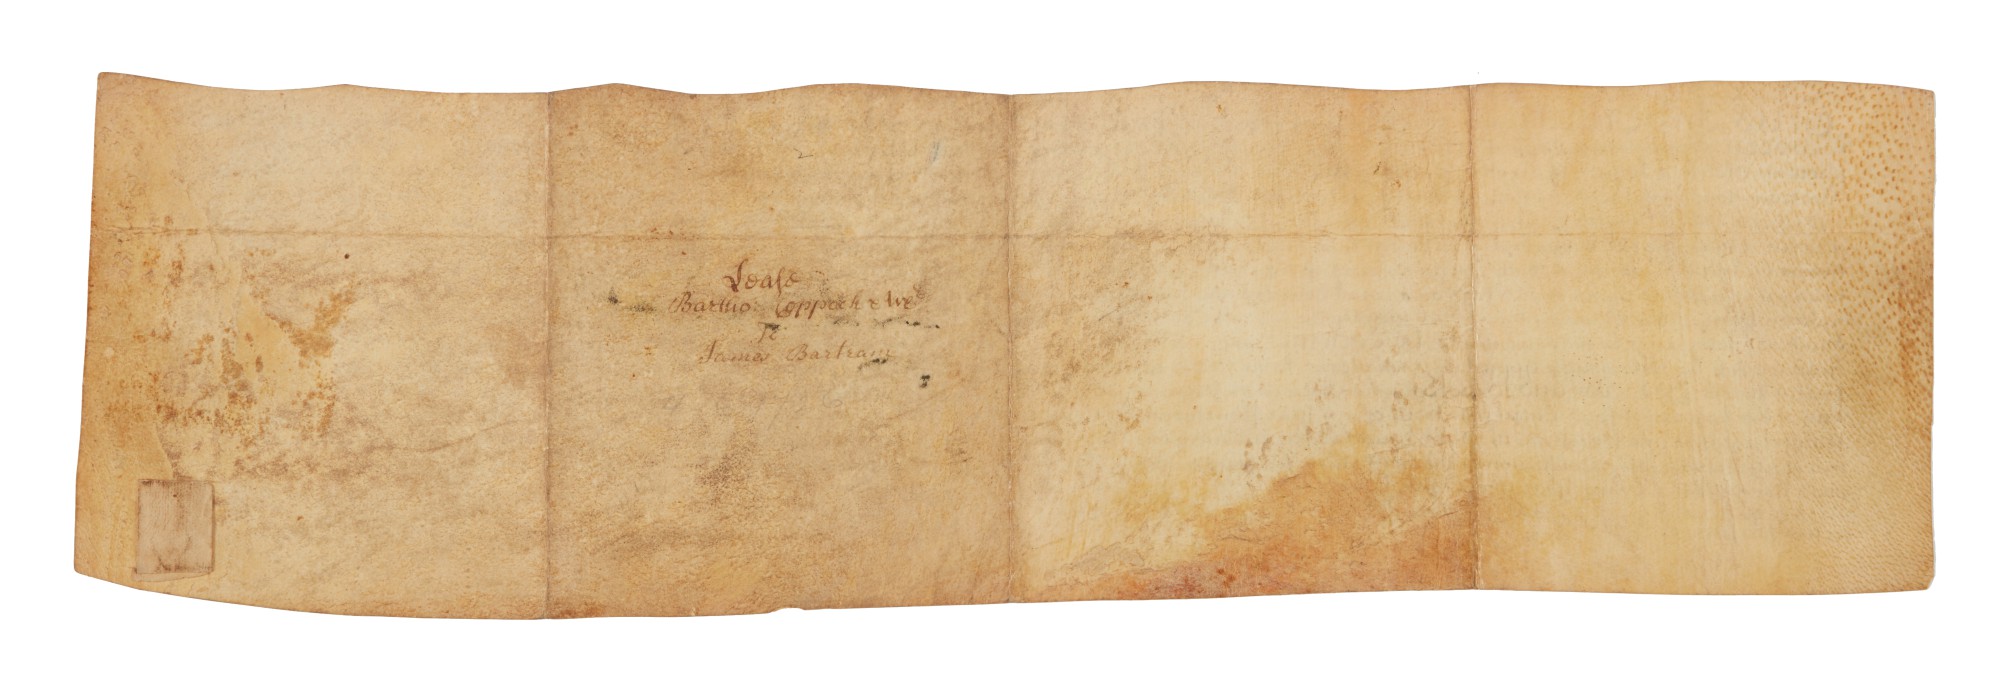 Lease
Barttho: Coppock & Wife
To
James Bartram